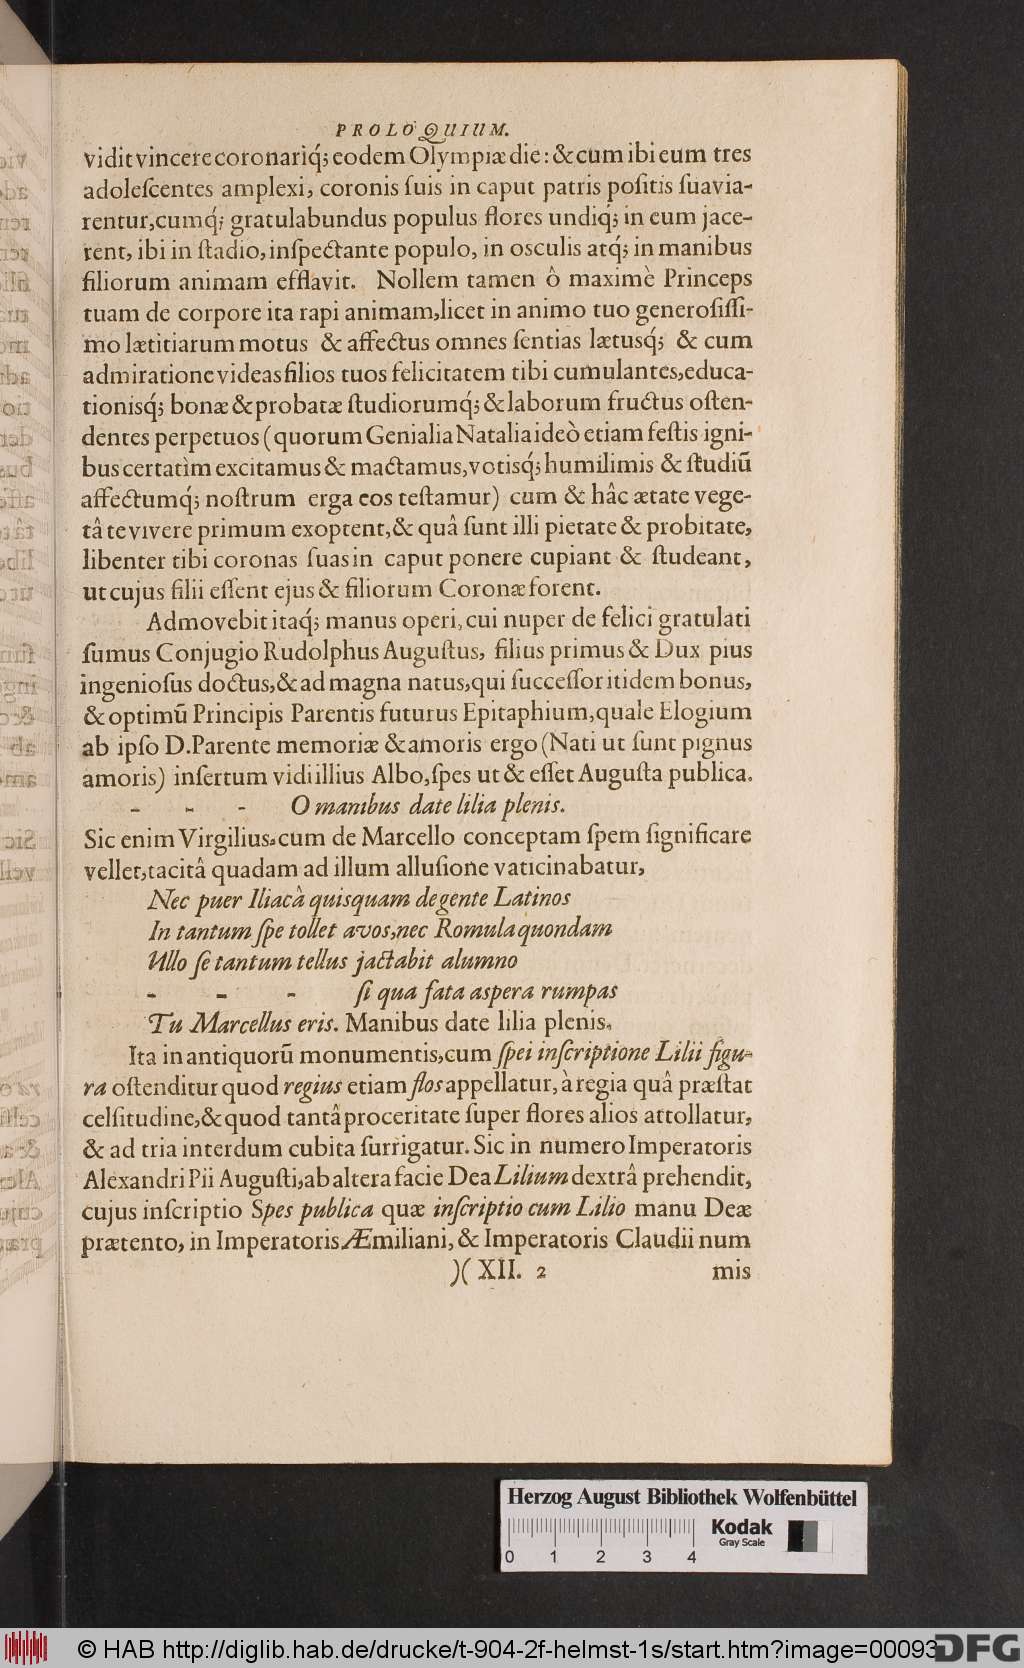 PROLOQUIUM.
vidit vincere coronariq́; eodem Olympiæ die: & cum ibi eum tres
adoleſcentes amplexi, coronis ſuis in caput patris poſitis ſuavia-
rentur, cumq́; gratulabundus populus flores undiq́; in eum jace-
rent, ibi in ſtadio, inſpectante populo, in osculis atq́; in manibus
filiorum animam efflavit. Nollem tamen ô maximè Princeps
tuam de corpore ita rapi animam, licet in animo tuo generoſiſſi-
mo lætitiarum motus & affectus omnes ſentias lætusq́; & cum
admiratione videas filios tuos felicitatem tibi cumulantes, educa-
tionisq́; bonæ & probatæ ſtudiorumq́; & laborum fructus oſten-
dentes perpetuos (quorum Genialia Natalia ideò etiam feſtis igni-
bus certatim excitamus & mactamus, votisq́; humilimis & ſtudiū
affectumq́; noſtrum erga eos teſtamur) cum & hâc ætate vege-
tâ te vivere primum exoptent, & quâ ſunt illi pietate & probitate,
libenter tibi coronas ſuas in caput ponere cupiant & ſtudeant,
ut cujus filii eſſent ejus & filiorum Coronæ forent.
Admovebit itaq́; manus operi, cui nuper de felici gratulati
ſumus Conjugio Rudolphus Auguſtus, filius primus & Dux pius
ingenioſus doctus, & ad magna natus, qui ſucceſſor itidem bonus,
& optimū Principis Parentis futurus Epitaphium, quale Elogium
ab ipſo D. Parente memoriæ & amoris ergo (Nati ut ſunt pignus
amoris) inſertum vidi illius Albo, ſpes ut & eſſet Auguſta publica.
- - - O manibus date lilia plenis.
Sic enim Virgilius, cum de Marcello conceptam ſpem ſignificare
vellet, tacitâ quadam ad illum alluſione vaticinabatur,
Nec puer Iliacà quisquam de gente Latinos
In tantum ſpe tollet avos, nec Romula quondam
Ullo ſe tantum tellus jactabit alumno
- - - ſi qua fata aspera rumpas
Tu Marcellus eris. Manibus date lilia plenis,
Ita in antiquorū monumentis, cum ſpei inſcriptione Lilii figu-
ra oſtenditur quod regius etiam flos appellatur, à regia quâ præſtat
celſitudine, & quod tantâ proceritate ſuper flores alios attollatur,
& ad tria interdum cubita ſurrigatur. Sic in numero Imperatoris
Alexandri Pii Auguſti, ab altera facie Dea Lilium dextrâ prehendit,
cujus inſcriptio Spes publica quæ inſcriptio cum Lilio manu Deæ
prætento, in Imperatoris Æmiliani, & Imperatoris Claudii num
)( XII. 2 mis
Herzog August Bibliothek Wolfenbüttel
Kodak
Gray Scale
0 1 2 3 4
© HAB http://diglib.hab.de/drucke/t-904-2f-helmst-1s/start.htm?image=00093
DFG